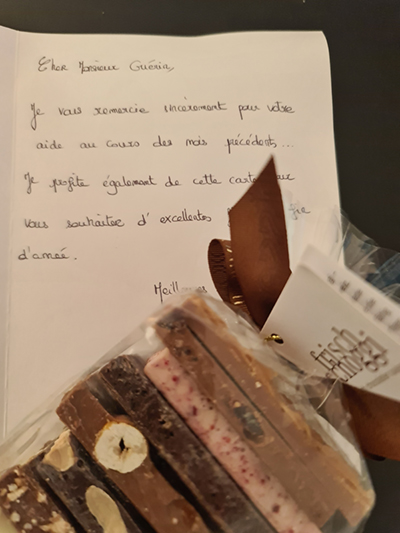 Cher Monsieur Guérin,
Je vous remercie sincèrement pour votre
aide au cours des mois précédents...
Je profite également de cette carte
vous souhaiter d'excellentes
d'année.
frisch